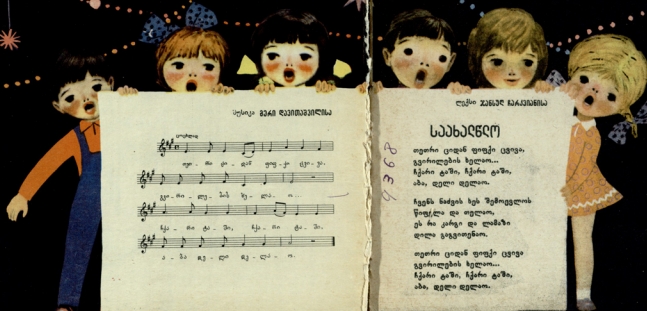 მუსიკა მერი დავითაშვილისა
თეთ - რი ცი - დან ფიფ - ქი ცვი - ვა,
გვი - რი - ლე - ბის ხე - ლა - ო...
ჩქა - რი ტა - ში, ჩქა - რი ტა - ში,
ა - ბა დე - ლი დე - ლა - ო.
ლექსი ჯანსუღ ჩარკვიანისა
საახალწლო
თეთრი ციდან ფიფქი ცვივა,
გვირილების ხელაო...
ჩქარი ტაში, ჩქარი ტაში,
აბა, დელი დელაო.
ჩვენს ნაძვის ხეს შემოევლოს
წიფელა და თელაო,
ეს რა კარგი და ლამაზი
დილა გაგვითენაო.
თეთრი ციდან ფიფქი ცვივა
გვირილების ხელაო...
ჩქარი ტაში, ჩქარი ტაში,
აბა, დელი დელაო.
9368